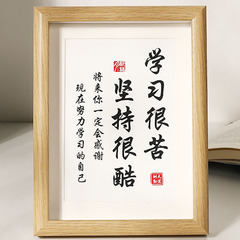 学习很苦
坚持很酷
将来你一定会感谢
现在努力学习的自己